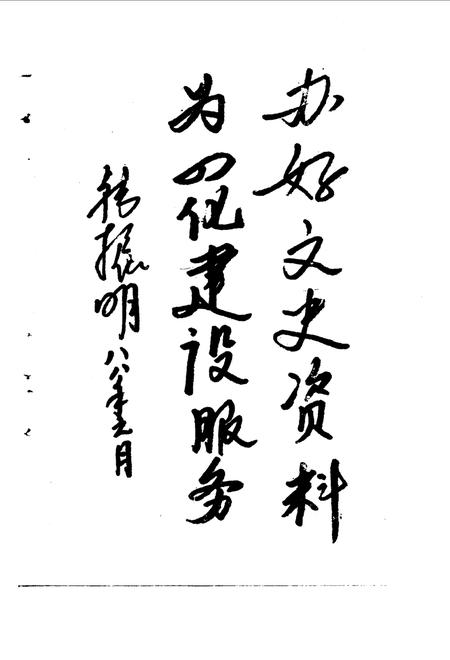 办好文史资料
为四化建设服务
韩振明 八八年元月